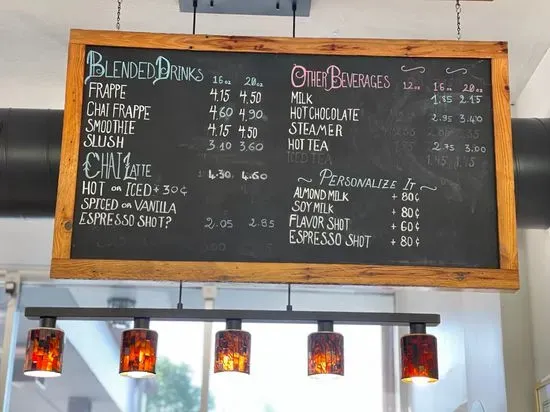 BLENDED DRINKS 16oz 20oz
FRAPPE 4.15 4.50
CHAI FRAPPE 4.60 4.90
SMOOTHIE 4.15 4.50
SLUSH 3.10 3.60
CHAI LATTE 4.30 4.60
HOT OR ICED + 30¢
SPICED OR VANILLA
ESPRESSO SHOT? 2.05 2.85
OTHER BEVERAGES 12oz 16oz 20oz
MILK 1.85 2.15
HOT CHOCOLATE 2.95 3.40
STEAMER
HOT TEA 2.75 3.00
ICED TEA 1.45 1.45
~ PERSONALIZE IT ~
ALMOND MILK + 80¢
SOY MILK + 80¢
FLAVOR SHOT + 60¢
ESPRESSO SHOT + 80¢